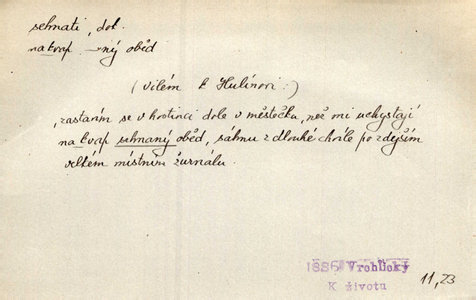 sehnati, dok.
na kvap. -ný oběd
(Vilém k Hulínovi:)
„zastavím se v hostinci dole v městečku, než mi uchystají
na kvap sehnaný oběd, sáhnu z dlouhé chvíle po zdejším
velkém místním žurnálu.
1886 Vrchlický 11,23
K životu